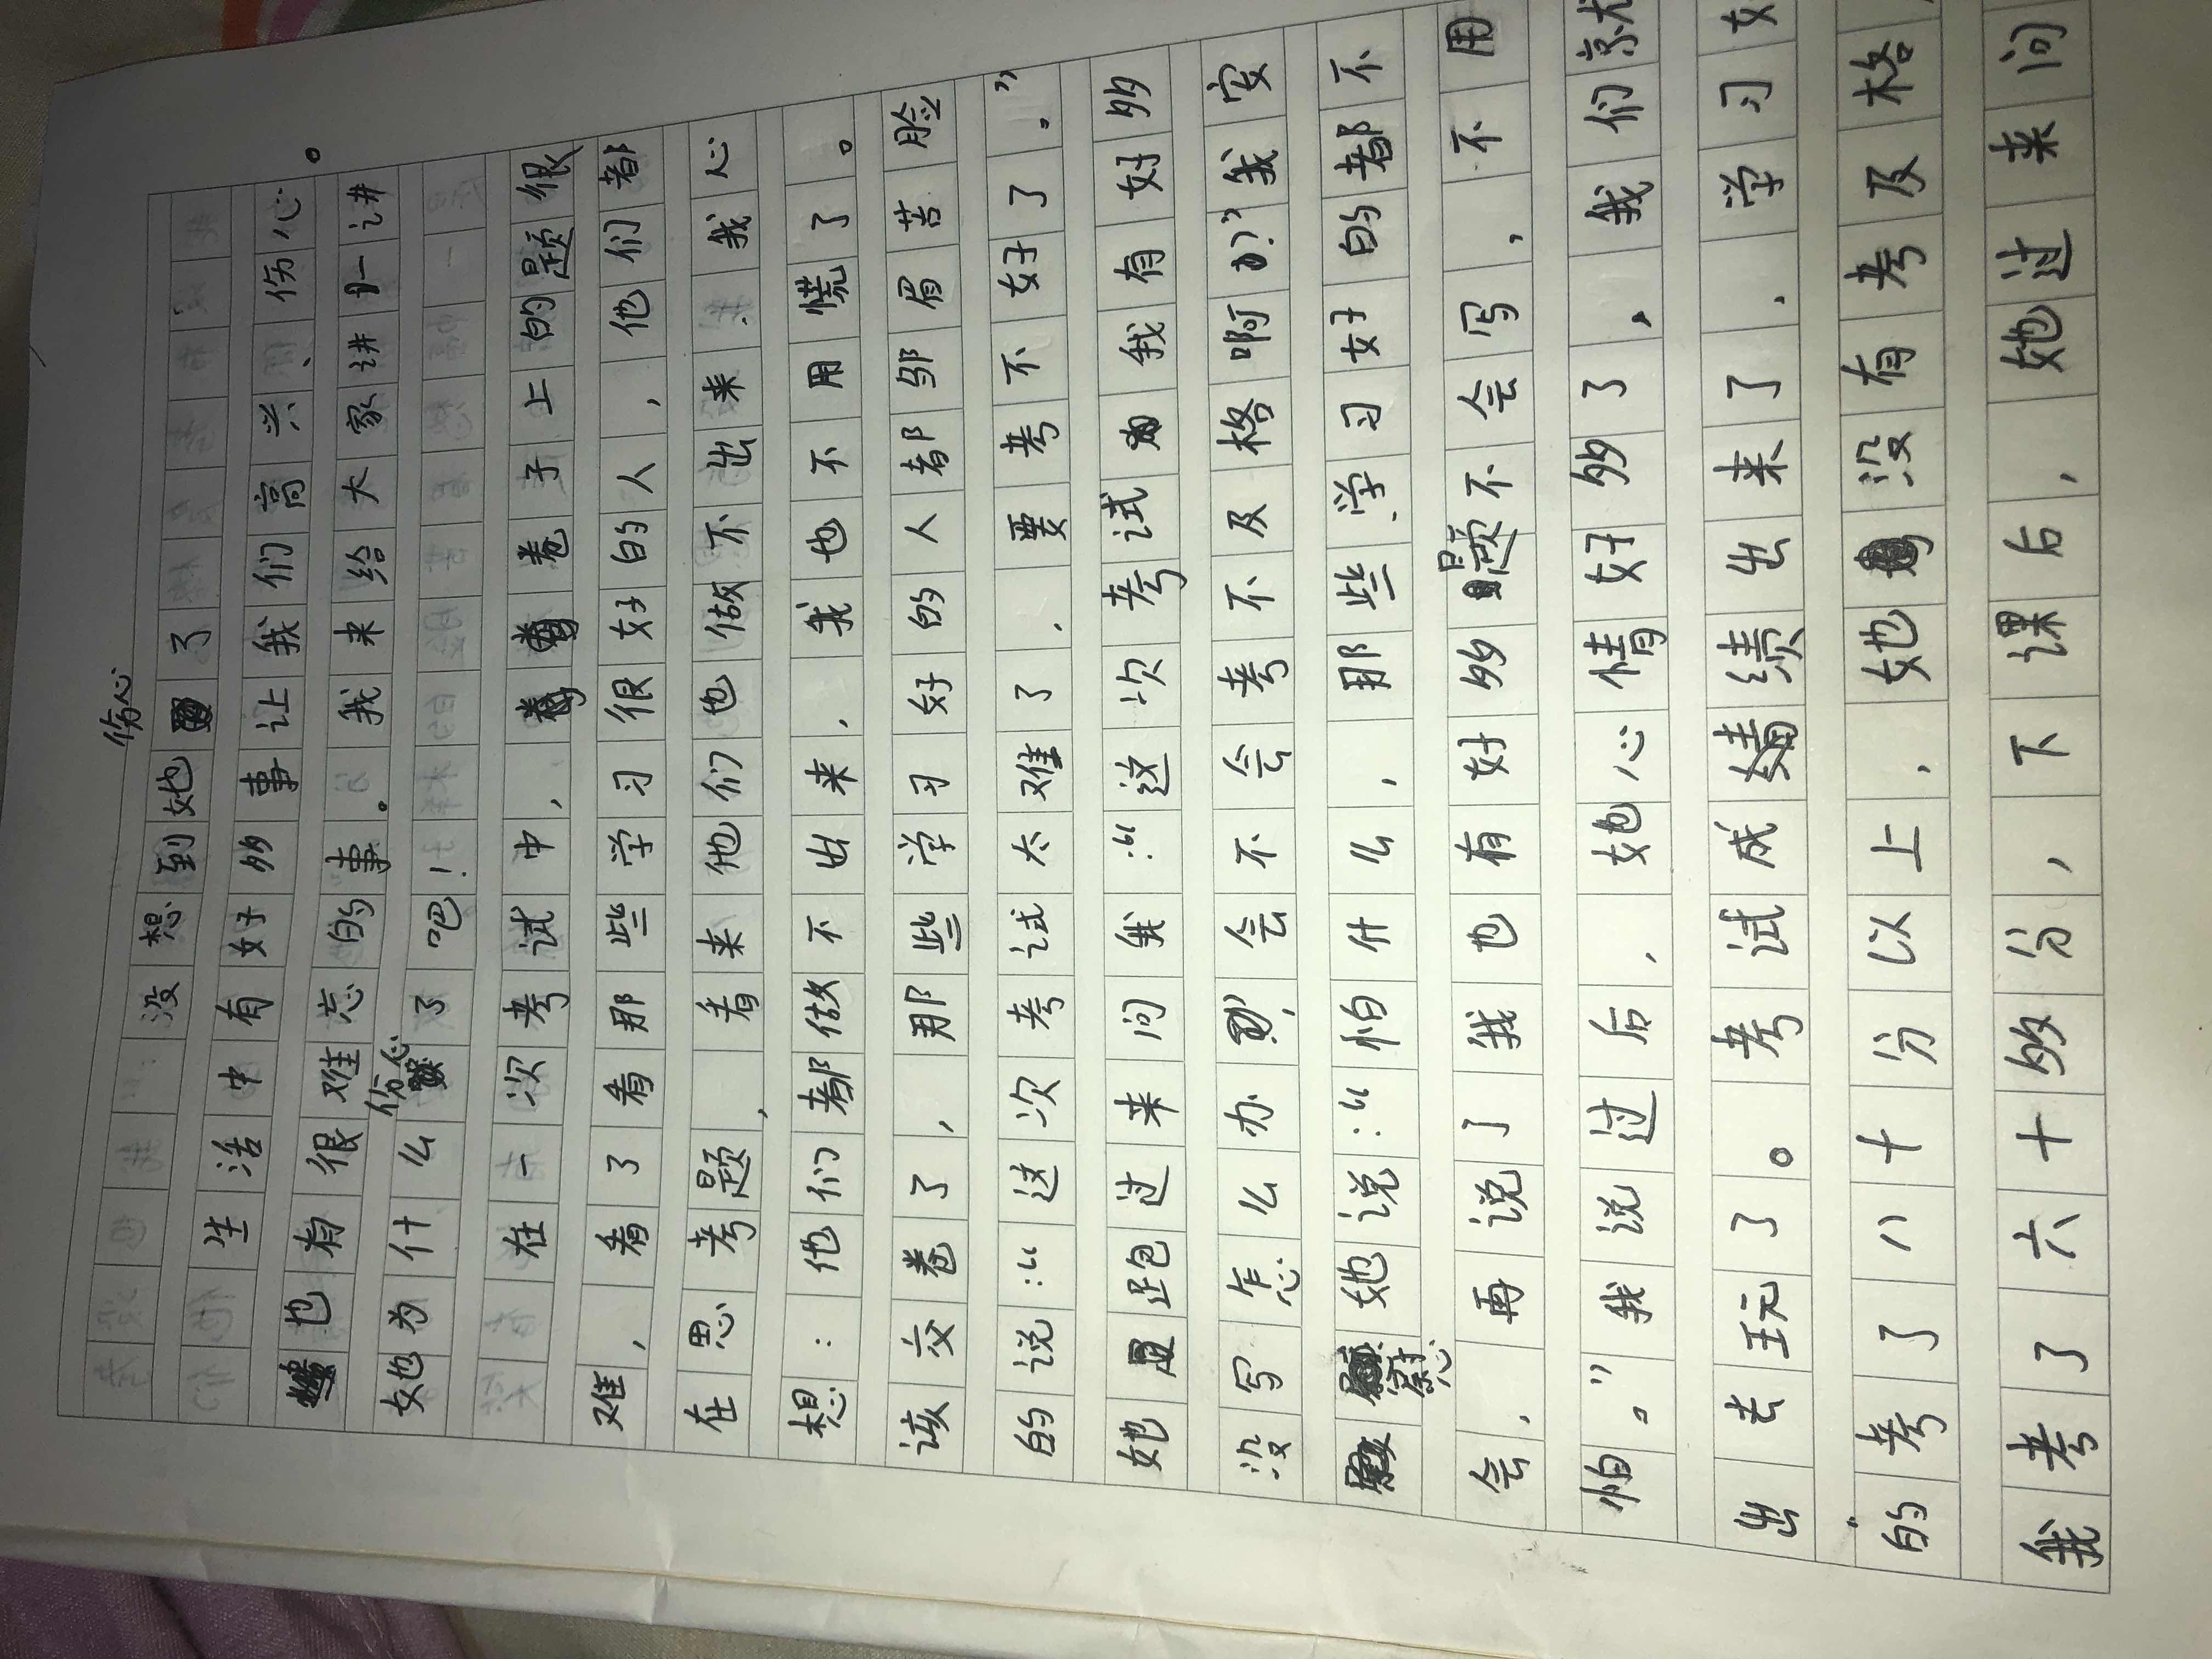 没想到她伤心了
生活中有好多事让我们高兴、伤心。
也有很难忘的事。我来给大家讲一讲
她为什么伤心了吧！
在一次考试中，卷子上的题很
难，看了看那些学习很好的人，他们都
在思考题，看来他们也做不出来．我心
想：他们都做不出来，我也不用慌了。
该交卷了，那些学习好的人都邹眉苦脸
的说：“这次考试太难了．要考不好了。”
她跑过来问我：“这次考试我有好多
没写怎么办，会会不会考不及格啊？”我安
慰她说：“怕什么，那些学习好的都不
会．再说了我也有好多题不会写，不用
怕。”我说过后，她心情好多了，我们就
出去玩了。考试成绩出来了．学习好
的考了八十分以上，她没有考及格，
我考了六十多分，下课后，她过来问